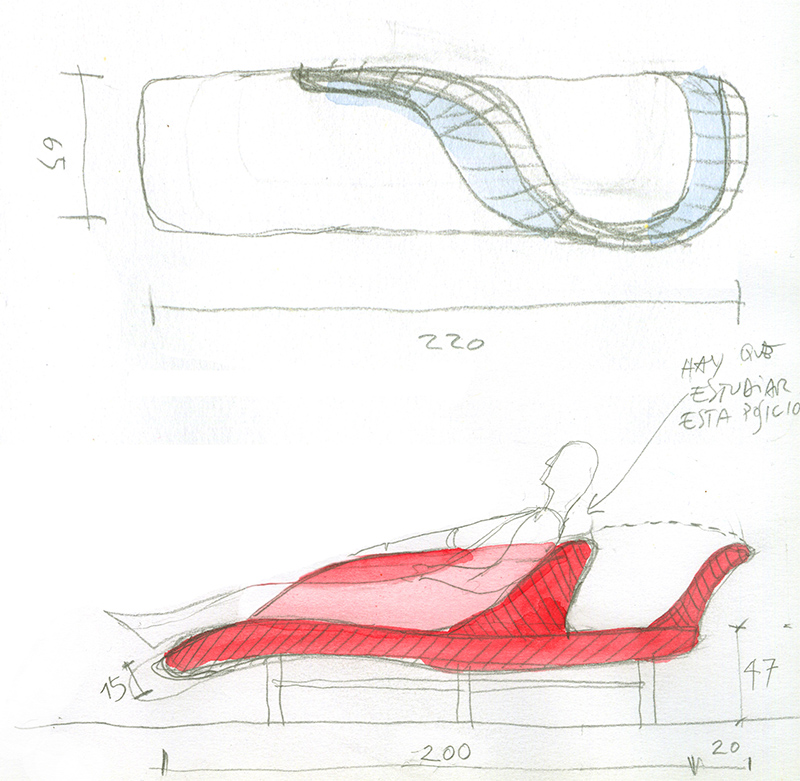 65
220
HAY QUE
ESTUDIAR
ESTA POSICIO
15
47
200
20